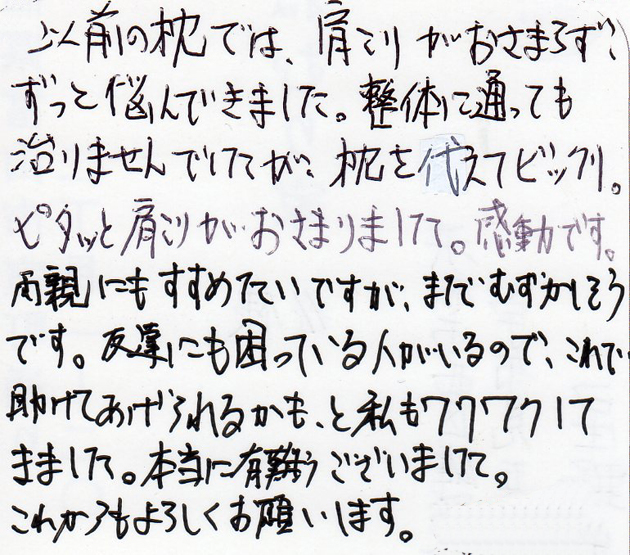 以前の枕では、肩こりがおさまらず、
ずっと悩んできました。整体に通っても
治りませんでしたが、枕を代えてビックリ。
ピタッと肩こりがおさまりました。感動です。
両親にもすすめたいですが、まだむずかしそう
です。友達にも困っている人がいるので、これで
助けてあげられるかも、と私もワクワクして
きました。本当に有難うございました。
これからもよろしくお願いします。